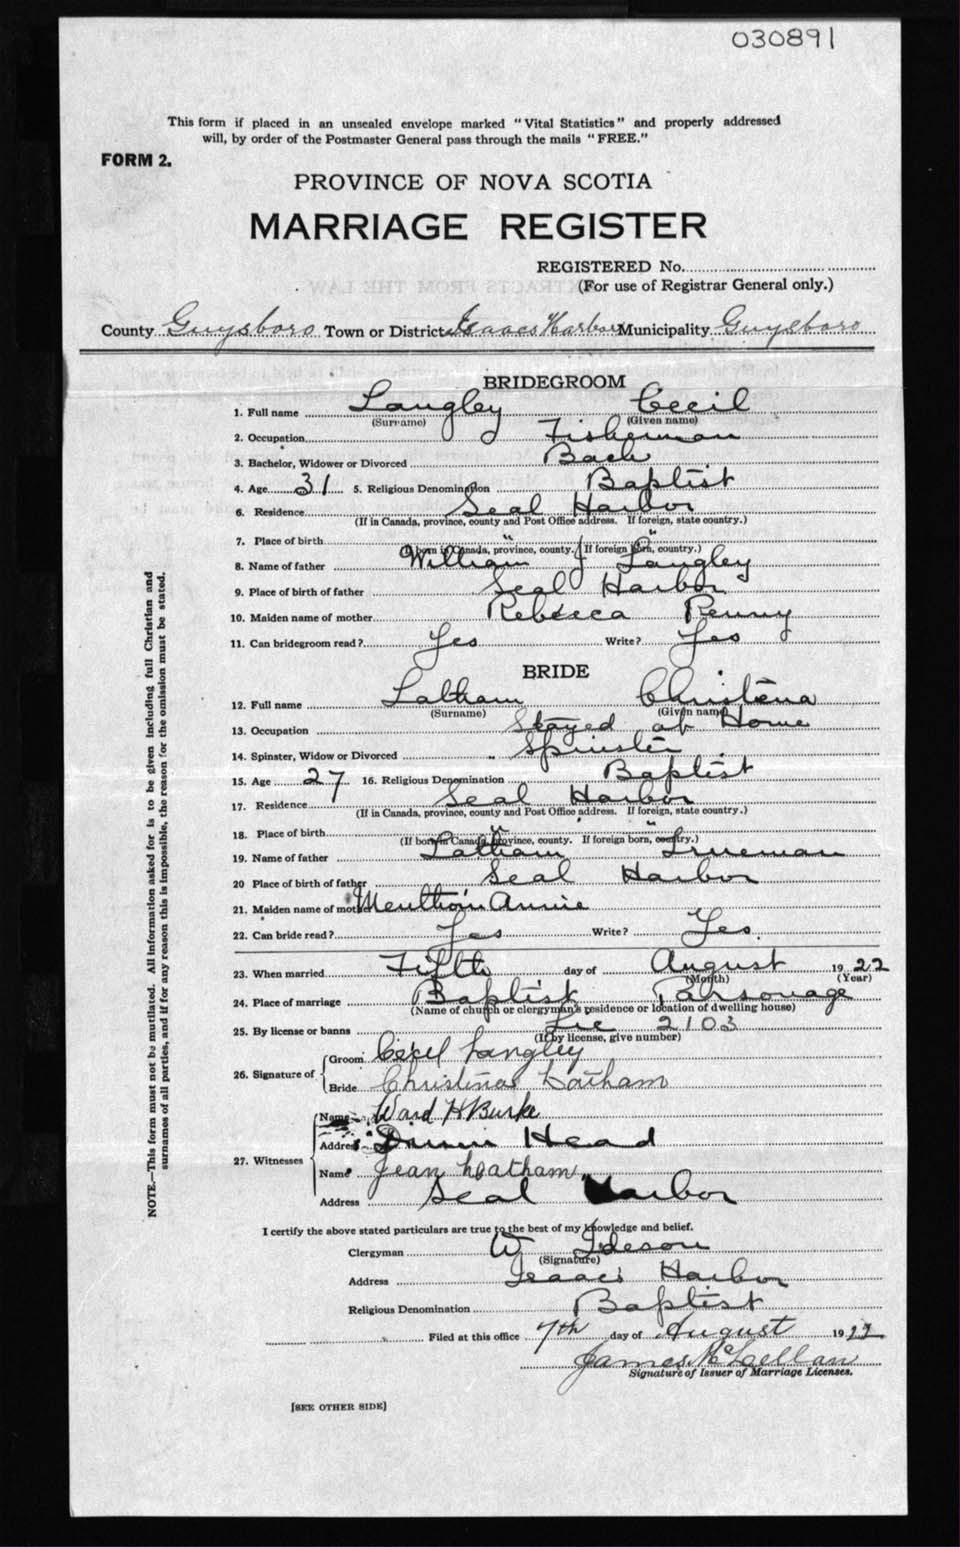 030891
This form if placed in an unsealed envelope marked "Vital Statistics" and properly addressed
will, by order of the Postmaster General pass through the mails "FREE."
FORM 2.
PROVINCE OF NOVA SCOTIA
MARRIAGE REGISTER
REGISTERED No.
(For use of Registrar General only.)
County Guysboro Town or District Isaacs Harbor Municipality Guysboro
BRIDEGROOM
1. Full name Langley Cecil
(Surname) (Given name)
2. Occupation Fisherman
3. Bachelor, Widower or Divorced Bach
4. Age 31 5. Religious Denomination Baptist
6. Residence Seal Harbor
(If in Canada, province, county and Post Office address. If foreign, state country.)
7. Place of birth " "
(If born in Canada, province, county. If foreign born, country.)
8. Name of father William J Langley
9. Place of birth of father Seal Harbor
10. Maiden name of mother Rebecca Penny
11. Can bridegroom read? Yes Write? Yes
BRIDE
12. Full name Latham Christena
(Surname) (Given name)
13. Occupation Stayed at Home
14. Spinster, Widow or Divorced Spinster
15. Age 27 16. Religious Denomination Baptist
17. Residence Seal Harbor
(If in Canada, province, county and Post Office address. If foreign, state country.)
18. Place of birth " "
(If born in Canada, province, county. If foreign born, country.)
19. Name of father Latham Trueman
20 Place of birth of father Seal Harbor
21. Maiden name of mother Annie
22. Can bride read? Yes Write? Yes.
23. When married Fifth day of August 1922
(Month) (Year)
24. Place of marriage Baptist Parsonage
(Name of church or clergyman's residence or location of dwelling house)
25. By license or banns Lic 2103
(If by license, give number)
26. Signature of
Groom Cecil Langley
Bride Christina Latham
27. Witnesses
Name Ward H Burke
Address Head
Name Jean Latham
Address Seal Harbor
I certify the above stated particulars are true to the best of my knowledge and belief.
Clergyman W
(Signature)
Address Isaac's Harbor
Religious Denomination Baptist
Filed at this office 7th day of August 1922
James McLellan
Signature of Issuer of Marriage Licenses.
[SEE OTHER SIDE]
NOTE.—This form must not be mutilated. All information asked for is to be given including full Christian and
surnames of all parties, and if for any reason this is impossible, the reason for the omission must be stated.